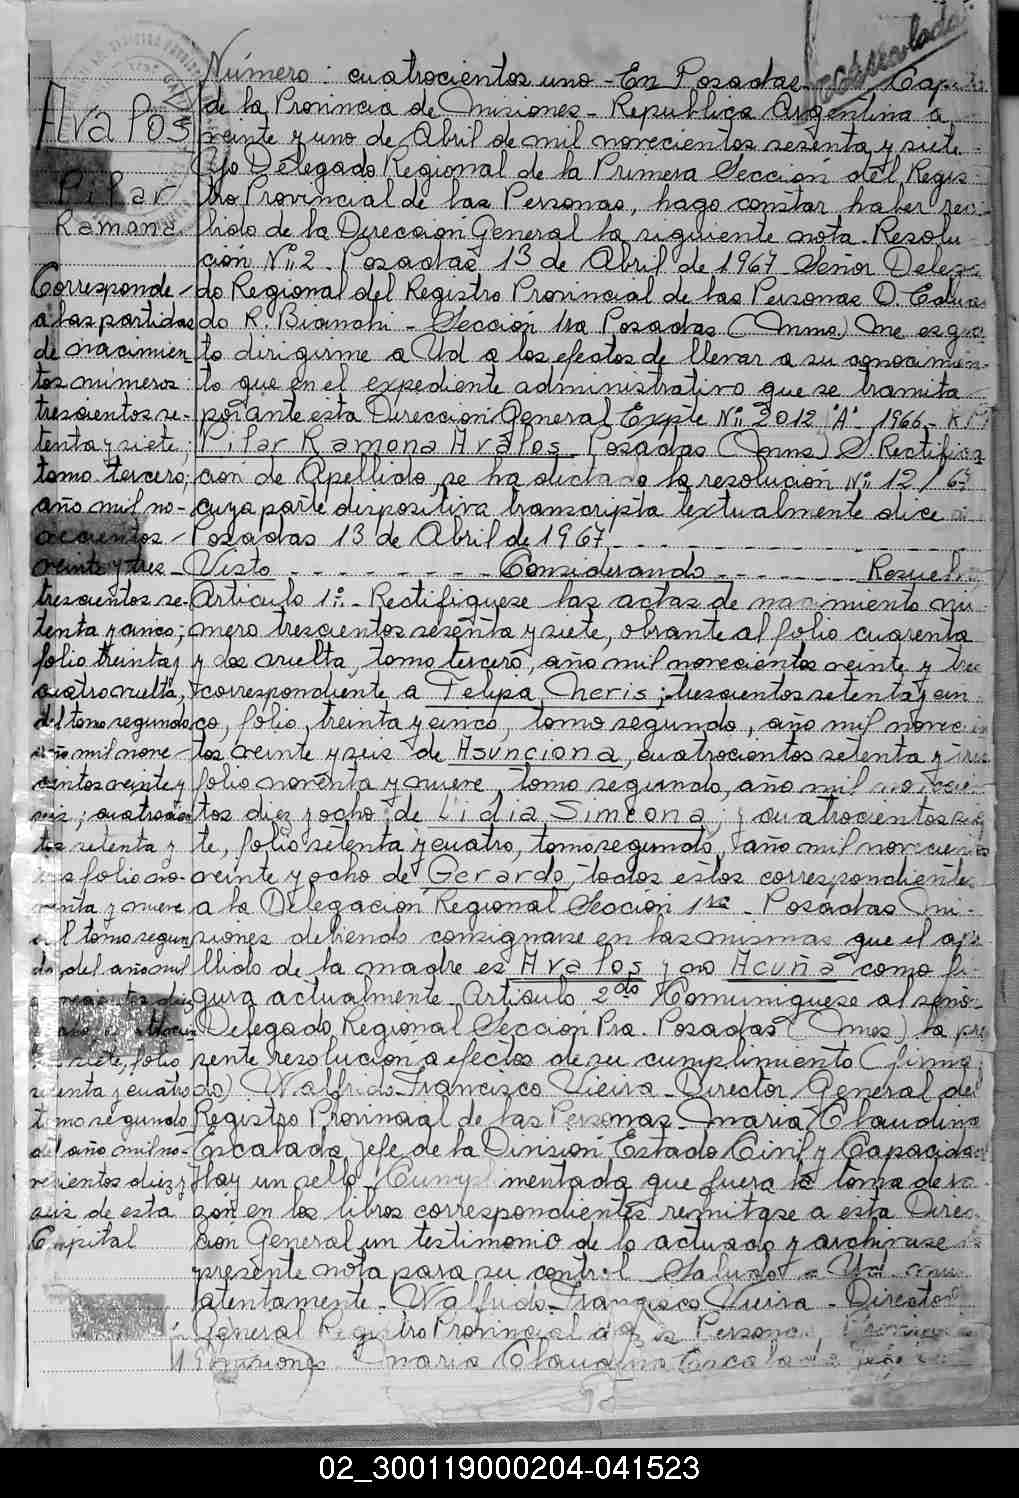 Correlada
Avalos
Pilar
Ramona.
Corresponde
a las partidas
de nacimien
tos números:
trescientos se-
tenta y siete;
tomo tercero;
año mil no-
vecientos
veinte y tres-
trescientos se-
tenta y cinco;
folio treinta y
cuatro vuelta,
del tomo segundo
año mil nove-
cientos veinte y
seis; cuatrocien
tos setenta y
tres folio no-
venta y nueve
del tomo segun
do, del año mil
novecientos diez
siete, folio
setenta y cuatro
tomo segundo
del año mil no-
vecientos diez y
seis de esta
Capital
Número: cuatrocientos uno - En Posadas Capital
de la Provincia de Misiones - Republica Argentina a
veinte y uno de Abril de mil novecientos sesenta y siete.
Yo Delegado Regional de la Primera Sección del Regis-
tro Provincial de las Personas, hago constar haber reci-
bido de la Dirección General la siguiente nota. Resolu
ción Nº 2. Posadas 13 de Abril de 1967 Señor Delega
do Regional del Registro Provincial de las Personas D. Eduar
do R. Bianchi - Sección 1ra Posadas (Mnes.) Me es gra
to dirigirme a Ud a los efectos de llevar a su conocimien-
to que en el expediente administrativo que se tramita
por ante esta Direccion General Expte Nº 2012 "A" 1966 -
Pilar Ramona Avalos Posadas (Mnes) S. Rectifica
cion de Apellido, se ha dictado la resolución Nº 12/67
cuya parte dispositiva transcripta textualmente dice
Posadas 13 de Abril de 1967
Visto - - - - - Considerando - - - - - Resuelve
Articulo 1º - Rectifiquese las actas de nacimiento nu
mero trescientos sesenta y siete, obrante al folio cuarenta
y dos vuelta, tomo tercero, año mil novecientos veinte y tres
correspondiente a Telipa Neris; trescientos setenta y cin
co, folio, treinta y cinco, tomo segundo, año mil novecien
tos veinte y seis de Asunciona, cuatrocientos setenta y tres
folio noventa y nueve, tomo segundo, año mil novecien
tos diez y ocho de Lidia Simeona, y cuatrocientos
te, folio setenta y cuatro, tomo segundo, año mil novecientos
veinte y ocho de Gerardo, todos estos correspondientes
a la Delegación Regional Sección 1ra - Posadas Mi-
siones debiendo consignarse en las mismas que el ape
llido de la madre es Avalos y no Acuña como fi-
gura actualmente - Articulo 2do Comuniquese al señor
Delegado Regional Sección Pra. Posadas (Mnes) la pre
sente resolución a efectos de su cumplimiento (firma
do) Walfrido Francisco Vieira - Director General del
Registro Provincial de las Personas - Maria Claudina
Escalada, Jefe de la División Estado Civil y Capacidad
Hay un sello - Cumplimentada que fuera la toma de ra
zón en los libros correspondientes remitase a esta Direc
cion General un testimonio de lo actuado y archivese la
presente nota para su control Saludo a Ud. muy
atentamente - Walfrido Francisco Vieira - Director
General Registro Provincial de las Personas, Provincia
Misiones. Maria Claudina Escalada Jefe
02_300119000204-041523